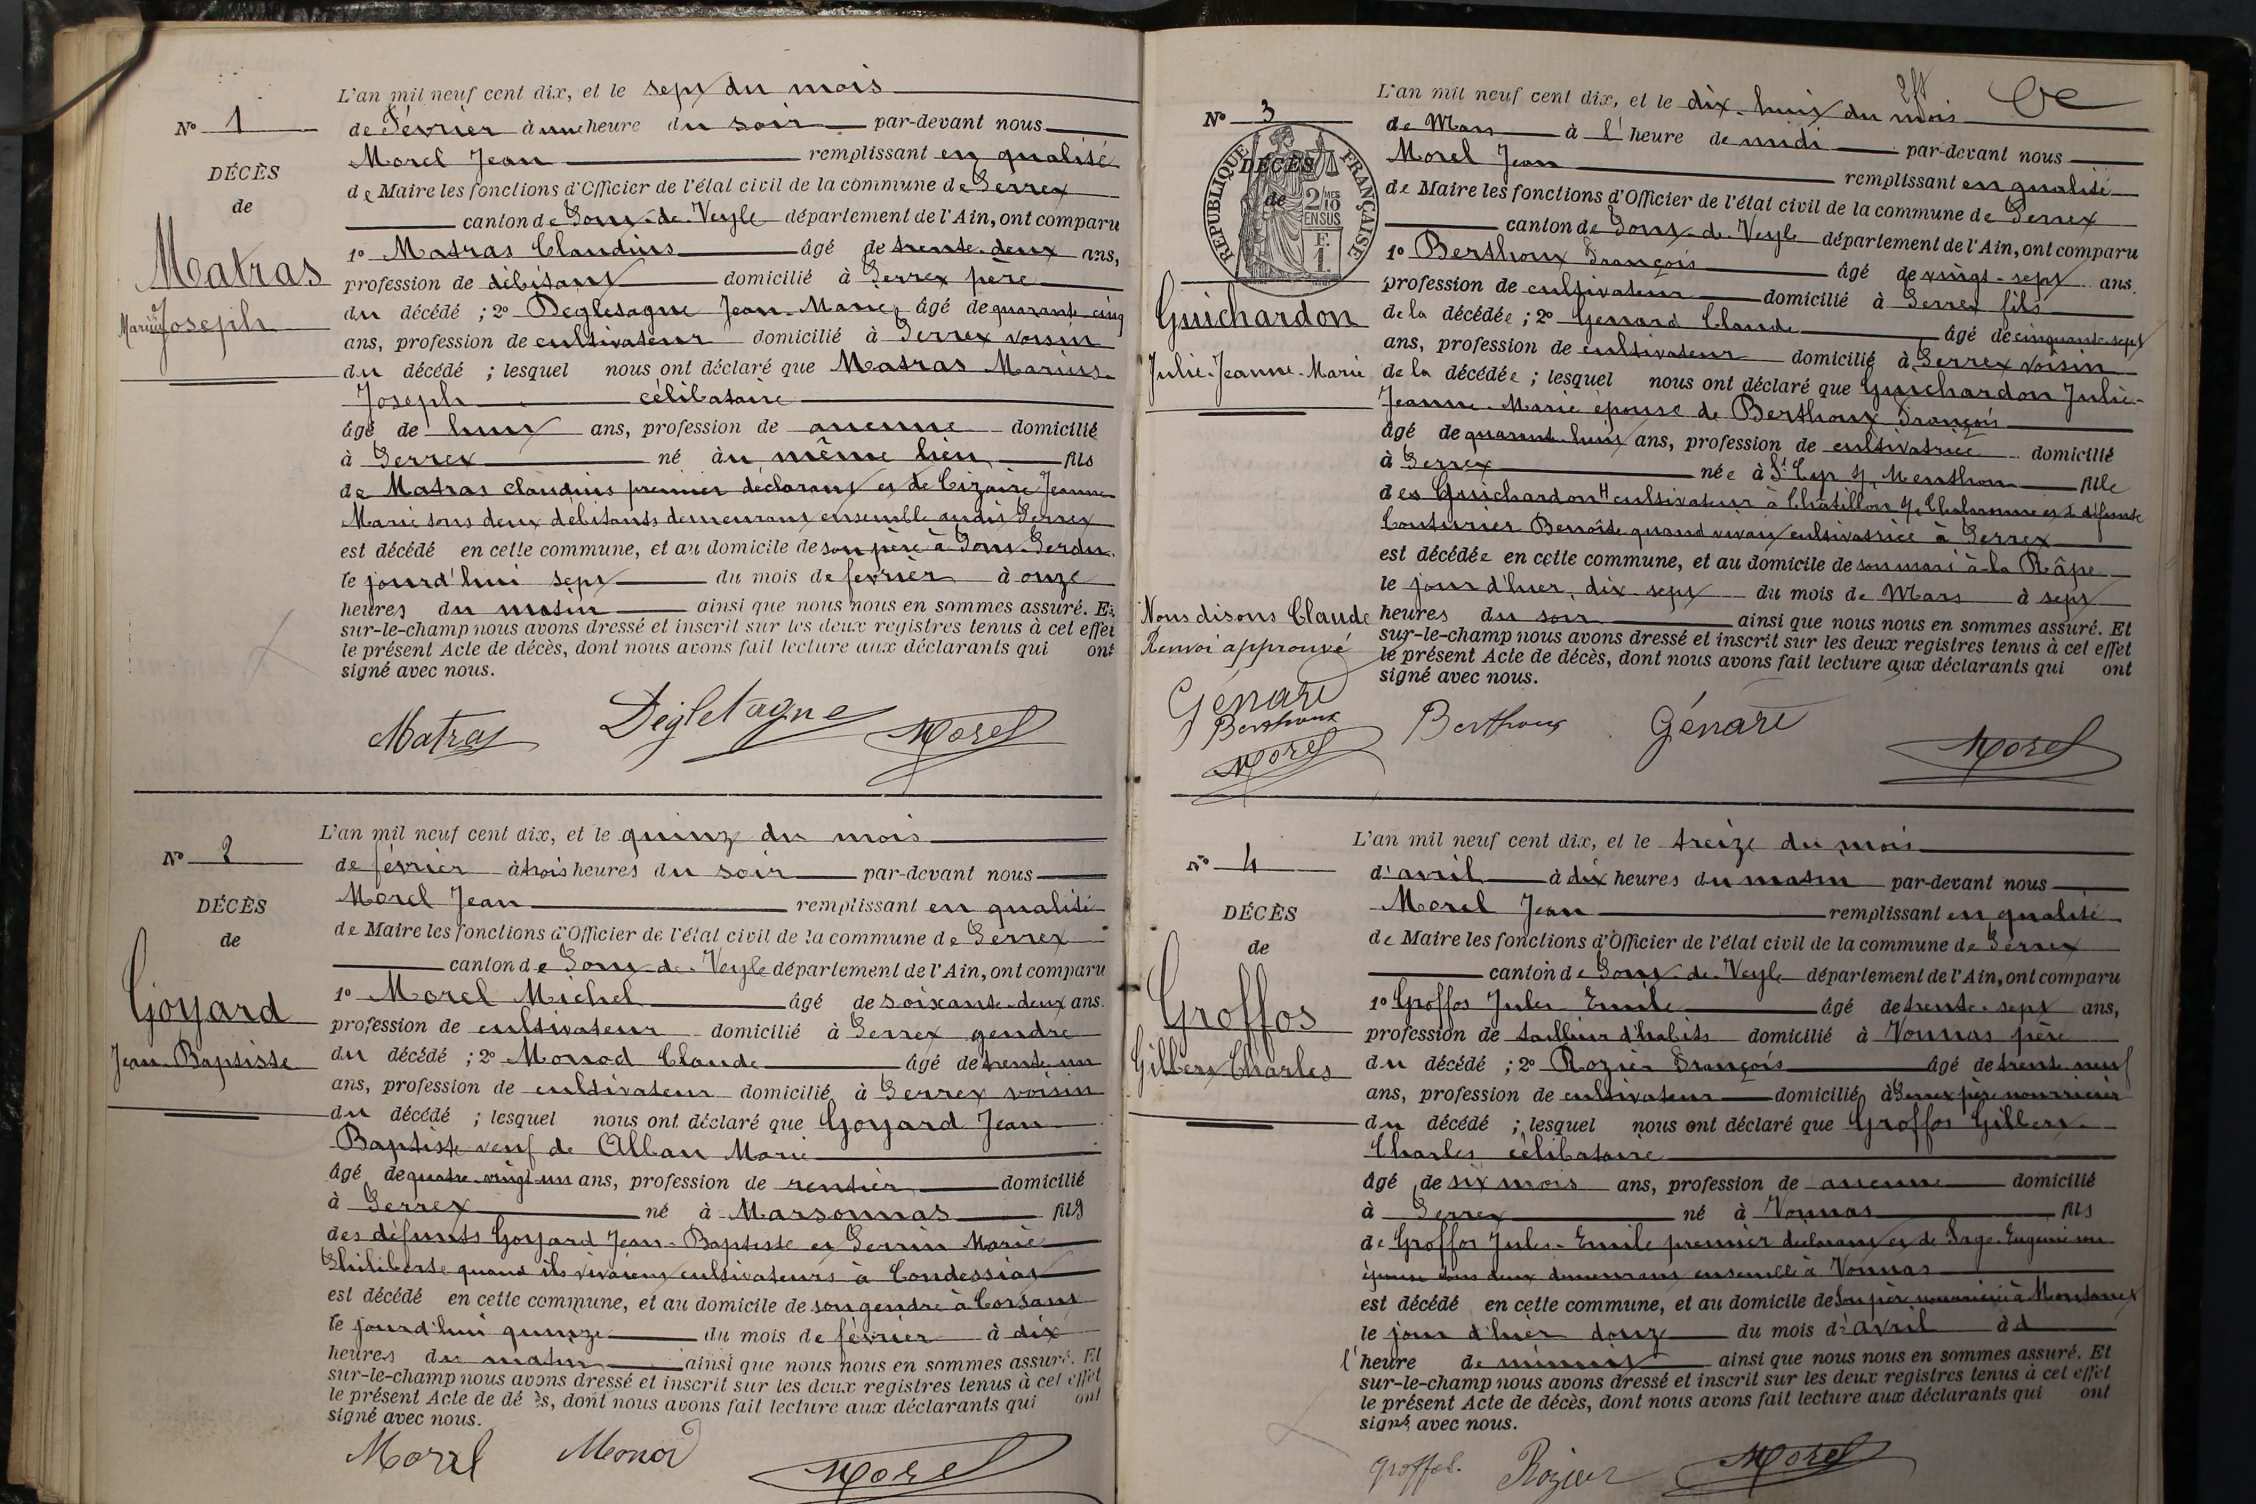 L'an mil neuf cent dix, et le sept du mois
N° 1
de Février à une heure du soir par-devant nous
Morel Jean remplissant en qualité
DÉCÈS
de Maire les fonctions d'Officier de l'état civil de la commune de Perrex
de
canton de Pont-de-Veyle département de l'Ain, ont comparu
Matras
1° Matras Claudius âgé de trente-deux ans,
profession de débitant domicilié à Perrex père
Marius Joseph
du décédé ; 2° Degletagne Jean-Marie âgé de quarante cinq
ans, profession de cultivateur domicilié à Perrex voisin
du décédé ; lesquel nous ont déclaré que Matras Marius
Joseph célibataire
âgé de huit ans, profession de aucune domicilié
à Perrex né au même lieu fils
de Matras Claudius premier déclarant et de Cizaire Jeanne
Marie tous deux débitants demeurant ensemble audit Perrex
est décédé en cette commune, et au domicile de son père à
le jourd'hui sept du mois de février à onze
heures du matin ainsi que nous nous en sommes assuré. Et
sur-le-champ nous avons dressé et inscrit sur les deux registres tenus à cet effet
le présent Acte de décès, dont nous avons fait lecture aux déclarants qui ont
signé avec nous.
Matras Degletagne Morel
L'an mil neuf cent dix, et le quinze du mois
N° 2
de février à trois heures du soir par-devant nous
Morel Jean remplissant en qualité
DÉCÈS
de Maire les fonctions d'Officier de l'état civil de la commune de Perrex
de
canton de Pont-de-Veyle département de l'Ain, ont comparu
Goyard
1° Morel Michel âgé de soixante-deux ans.
profession de cultivateur domicilié à Perrex gendre
Jean-Baptiste
du décédé ; 2° Monod Claude âgé de trente un
ans, profession de cultivateur domicilié à Perrex voisin
du décédé ; lesquel nous ont déclaré que Goyard Jean
Baptiste veuf de Alban Marie
âgé de quatre-vingt-un ans, profession de rentier domicilié
à Perrex né à Marsonnas fils
des défunts Goyard Jean-Baptiste et Perrin Marie
Philiberte quand ils vivaient cultivateurs à Condessiat
est décédé en cette commune, et au domicile de son gendre à Corsant
le jourd'hui quinze du mois de février à dix
heures du matin ainsi que nous nous en sommes assuré. Et
sur-le-champ nous avons dressé et inscrit sur les deux registres tenus à cet effet
le présent Acte de décès, dont nous avons fait lecture aux déclarants qui ont
signé avec nous.
Morel Monod Morel
L'an mil neuf cent dix, et le dix-huit du mois
N° 3
de Mars à l'heure de midi par-devant nous
Morel Jean remplissant en qualité
DÉCÈS
RÉPUBLIQUE FRANÇAISE
2/10 EN SUS
de Maire les fonctions d'Officier de l'état civil de la commune de Perrex
de
canton de Pont-de-Veyle département de l'Ain, ont comparu
1° Berthoux François âgé de vingt-sept ans.
profession de cultivateur domicilié à Perrex fils
Guichardon
de la décédée ; 2° Genard Claude âgé de cinquante-sept
ans, profession de cultivateur domicilié à Perrex voisin
Julie-Jeanne-Marie
de la décédée ; lesquel nous ont déclaré que Guichardon Julie-
Jeanne-Marie épouse de Berthoux François
âgé de quarante-huit ans, profession de cultivatrice domicilié
à Perrex née à St Cyr s/ Menthon fille
des Guichardon H cultivateur à Châtillon s/ Chalaronne et de défunte
Couturier Benoîte quand vivait cultivatrice à Perrex
est décédée en cette commune, et au domicile de son mari à la Râpe
le jour d'hier, dix-sept du mois de Mars à sept
Nous disons Claude
heures du soir ainsi que nous nous en sommes assuré. Et
Renvoi approuvé
sur-le-champ nous avons dressé et inscrit sur les deux registres tenus à cet effet
le présent Acte de décès, dont nous avons fait lecture aux déclarants qui ont
signé avec nous.
Génard
Berthoux
Morel
Berthoux Génard Morel
L'an mil neuf cent dix, et le treize du mois
N° 4
d'avril à dix heures du matin par-devant nous
Morel Jean remplissant en qualité
DÉCÈS
de Maire les fonctions d'Officier de l'état civil de la commune de Perrex
de
canton de Pont-de-Veyle département de l'Ain, ont comparu
Groffos
1° Groffos Jules Emile âgé de trente-sept ans,
profession de tailleur d'habits domicilié à Vonnas père
Gilbert Charles
du décédé ; 2° Rozier François âgé de trente neuf
ans, profession de cultivateur domicilié à Perrex père nourricier
du décédé ; lesquel nous ont déclaré que Groffos Gilbert
Charles célibataire
âgé de six mois ans, profession de aucune domicilié
à Perrex né à Vonnas fils
de Groffos Jules-Emile premier déclarant et de Page Eugénie son
épouse tous deux demeurant ensemble à Vonnas
est décédé en cette commune, et au domicile de son père nourricier à
le jour d'hier douze du mois d'avril à d
l'heure de minuit ainsi que nous nous en sommes assuré. Et
sur-le-champ nous avons dressé et inscrit sur les deux registres tenus à cet effet
le présent Acte de décès, dont nous avons fait lecture aux déclarants qui ont
signé avec nous.
Groffos Rozier Morel